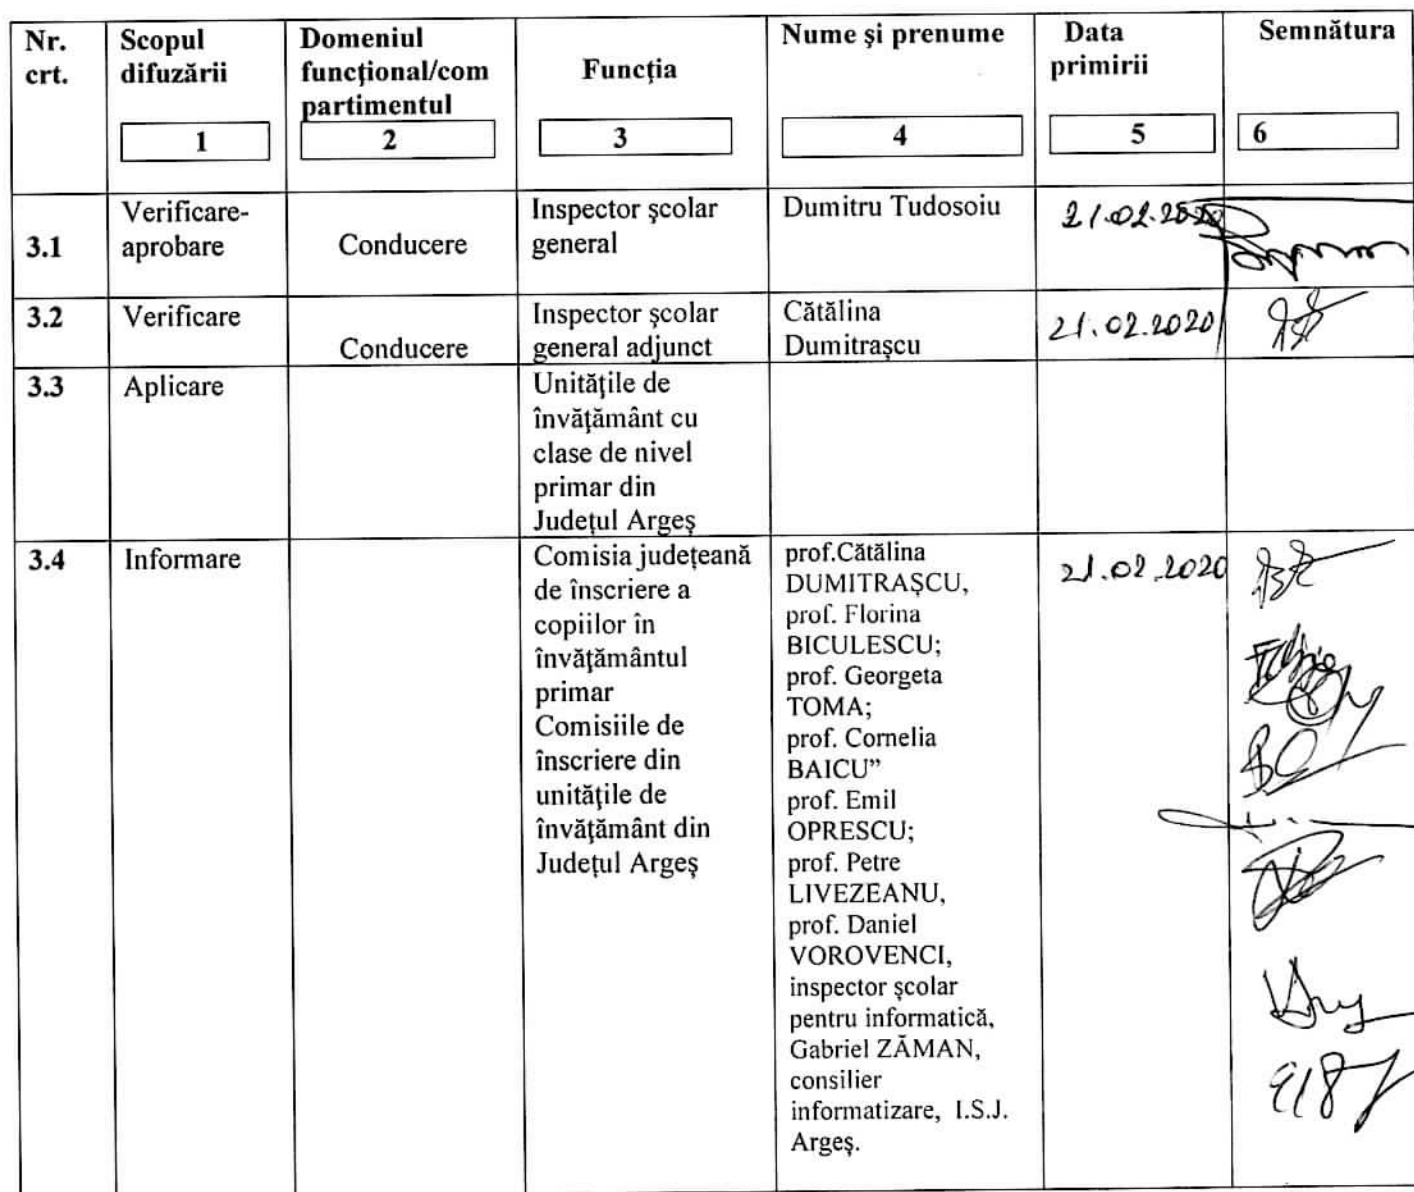 Nr.
crt.
Scopul
difuzării
1
Domeniul
funcțional/com
partimentul
2
Funcția
3
Nume și prenume
4
Data
primirii
5
Semnătura
6
3.1
Verificare-
aprobare
Conducere
Inspector școlar
general
Dumitru Tudosoiu
21.02.2020
3.2
Verificare
Conducere
Inspector școlar
general adjunct
Cătălina
Dumitrașcu
21.02.2020
3.3
Aplicare
Unitățile de
învățământ cu
clase de nivel
primar din
Județul Argeș
3.4
Informare
Comisia județeană
de înscriere a
copiilor în
învățământul
primar
Comisiile de
înscriere din
unitățile de
învățământ din
Județul Argeș
prof.Cătălina
DUMITRAȘCU,
prof. Florina
BICULESCU;
prof. Georgeta
TOMA;
prof. Cornelia
BAICU”
prof. Emil
OPRESCU;
prof. Petre
LIVEZEANU,
prof. Daniel
VOROVENCI,
inspector școlar
pentru informatică,
Gabriel ZĂMAN,
consilier
informatizare, I.S.J.
Argeș.
21.02.2020